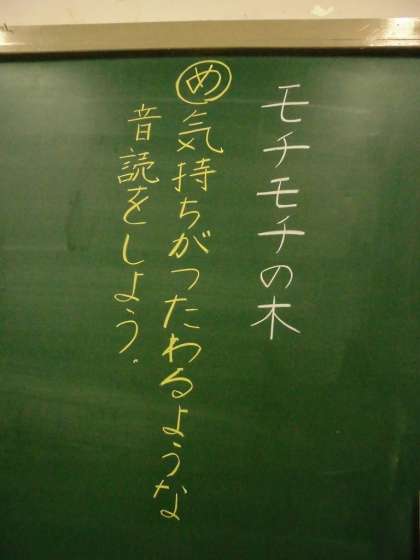 モチモチの木
め 気持ちがつたわるような
音読をしよう。